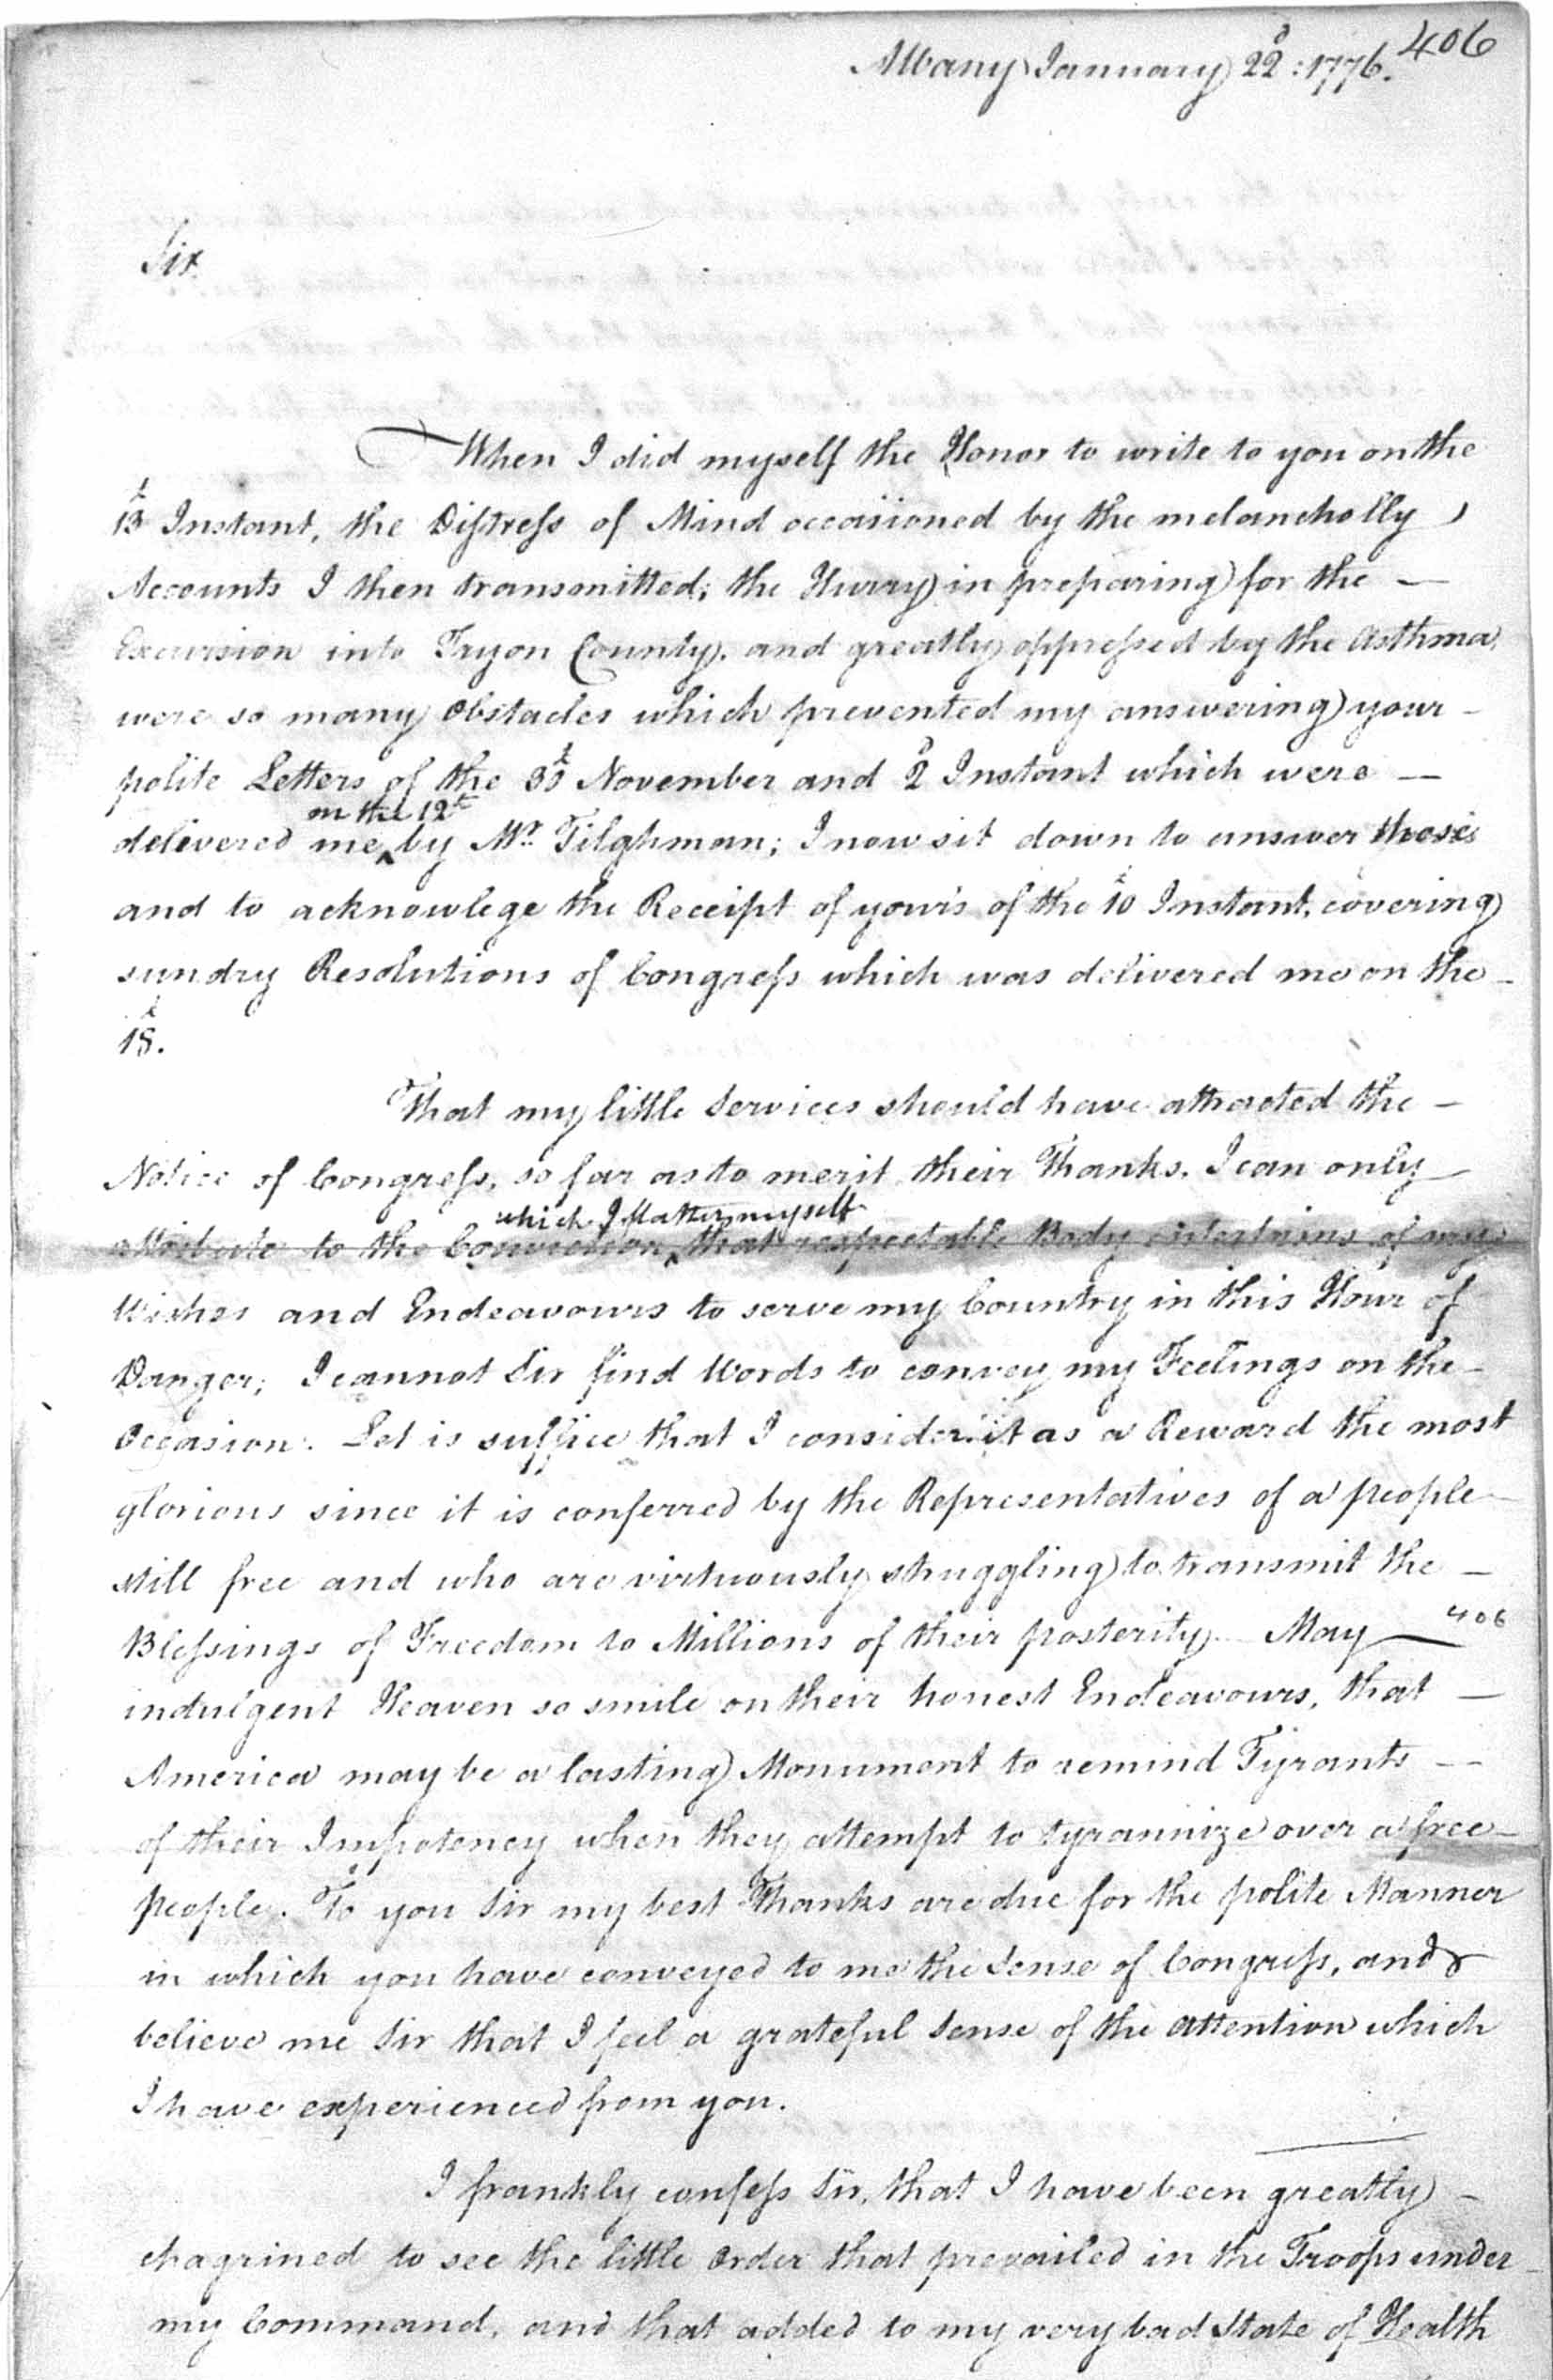 406
Albany January 22d: 1776.
Sir
When I did myself the Honor to write to you on the
13t Instant, the Distress of Mind occasioned by the melancholly
Accounts I then transmitted; the Hurry in preparing for the —
Excursion into Tryon County, and greatly oppressed by the Asthma,
were so many Obstacles which prevented my answering your –
polite Letters of the 30t November and 2d Instant which were —
on the 12t
delivered me ‸ by Mr. Tilghman; I now sit down to answer those
and to acknowlege the Receipt of your's of the 10t Instant, covering
sundry Resolutions of Congress which was delivered me on the –
18t.
That my little Services should have attracted the –
Notice of Congress, so far as to merit their Thanks, I can only
which I flatter myself
attribute to the Conviction ‸ that respectable Body entertains of my
Wishes and Endeavours to serve my Country in this Hour of
Danger; I cannot Sir find Words to convey my Feelings on the –
Occasion. Let is suffice that I consider it as a Reward the most
glorious since it is conferred by the Representatives of a people
still free and who are virtuously struggling to transmit the –
Blessings of Freedom to Millions of their posterity. May —
406
indulgent Heaven so smile on their honest Endeavours, that —
America may be a lasting Monument to remind Tyrants —
of their Impotency when they attempt to tyrannize over a free –
people. To you Sir my best Thanks are due for the polite Manner
in which you have conveyed to me the Sense of Congress, and
believe me Sir that I feel a grateful Sense of the Attention which
I have experienced from you.
I frankly confess Sir, that I have been greatly –
chagrined to see the little Order that prevailed in the Troops under
my Command, and that added to my very bad State of Health